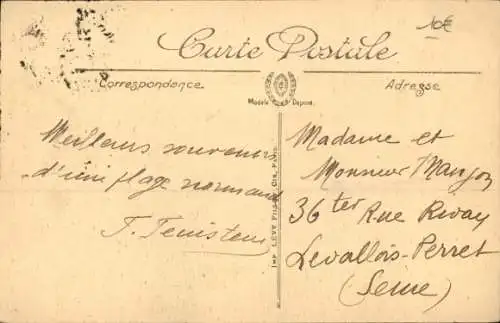 10€
Carte Postale
Correspondance
Adresse
Modèle Déposé
Meilleurs souvenirs
d'une plage normande
Madame et
Monsieur
36 ter Rue Rivay
Levallois-Perret
(Seine)
IMP. LÉVY FILS & CIE, PARIS